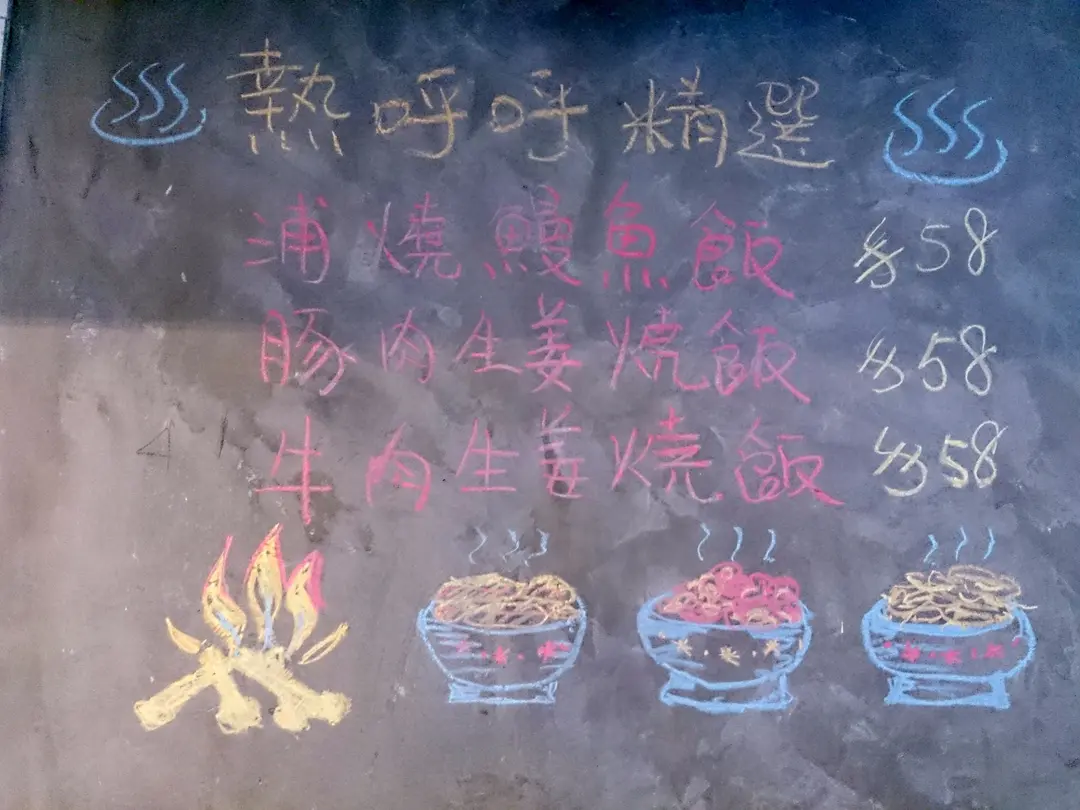 熱呼呼精選
浦燒鰻魚飯 $58
豚肉生姜烧飯 $58
牛肉生姜燒飯 $58